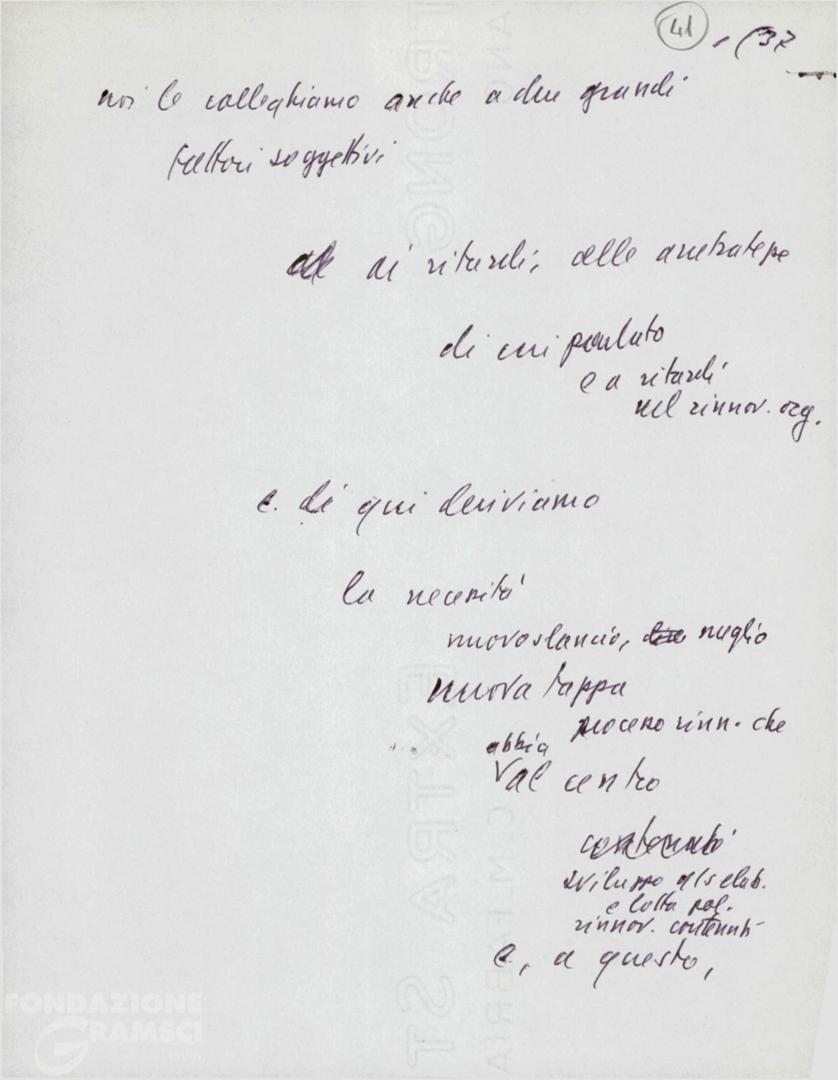 41
37
noi le colleghiamo anche a due grandi
fattori soggettivi
ai ritardi, alle arretratezze
di cui parlato
e a ritardi
nel rinnov. org.
e di qui deriviamo
la necessità
nuovo slancio, meglio
nuova tappa
processo rinn. che
abbia
al centro
contenuti
sviluppo elab.
e lotta pol.
rinnov. contenuti
e, a questo,
FONDAZIONE
GRAMSCI
EXTRA ST
C.M. FABRIA